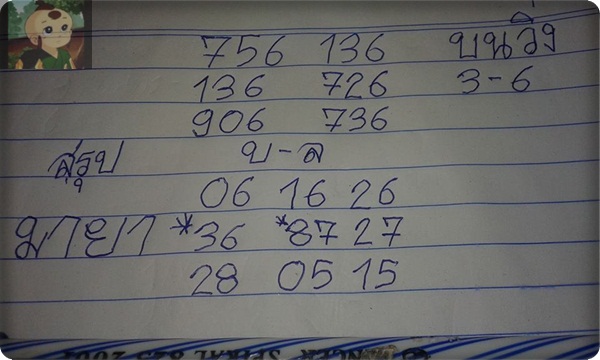 756 136 บนวิ่ง
136 726 3-6
906 736
สรุป บ-ล
06 16 26
มายา *36 *87 27
28 05 15